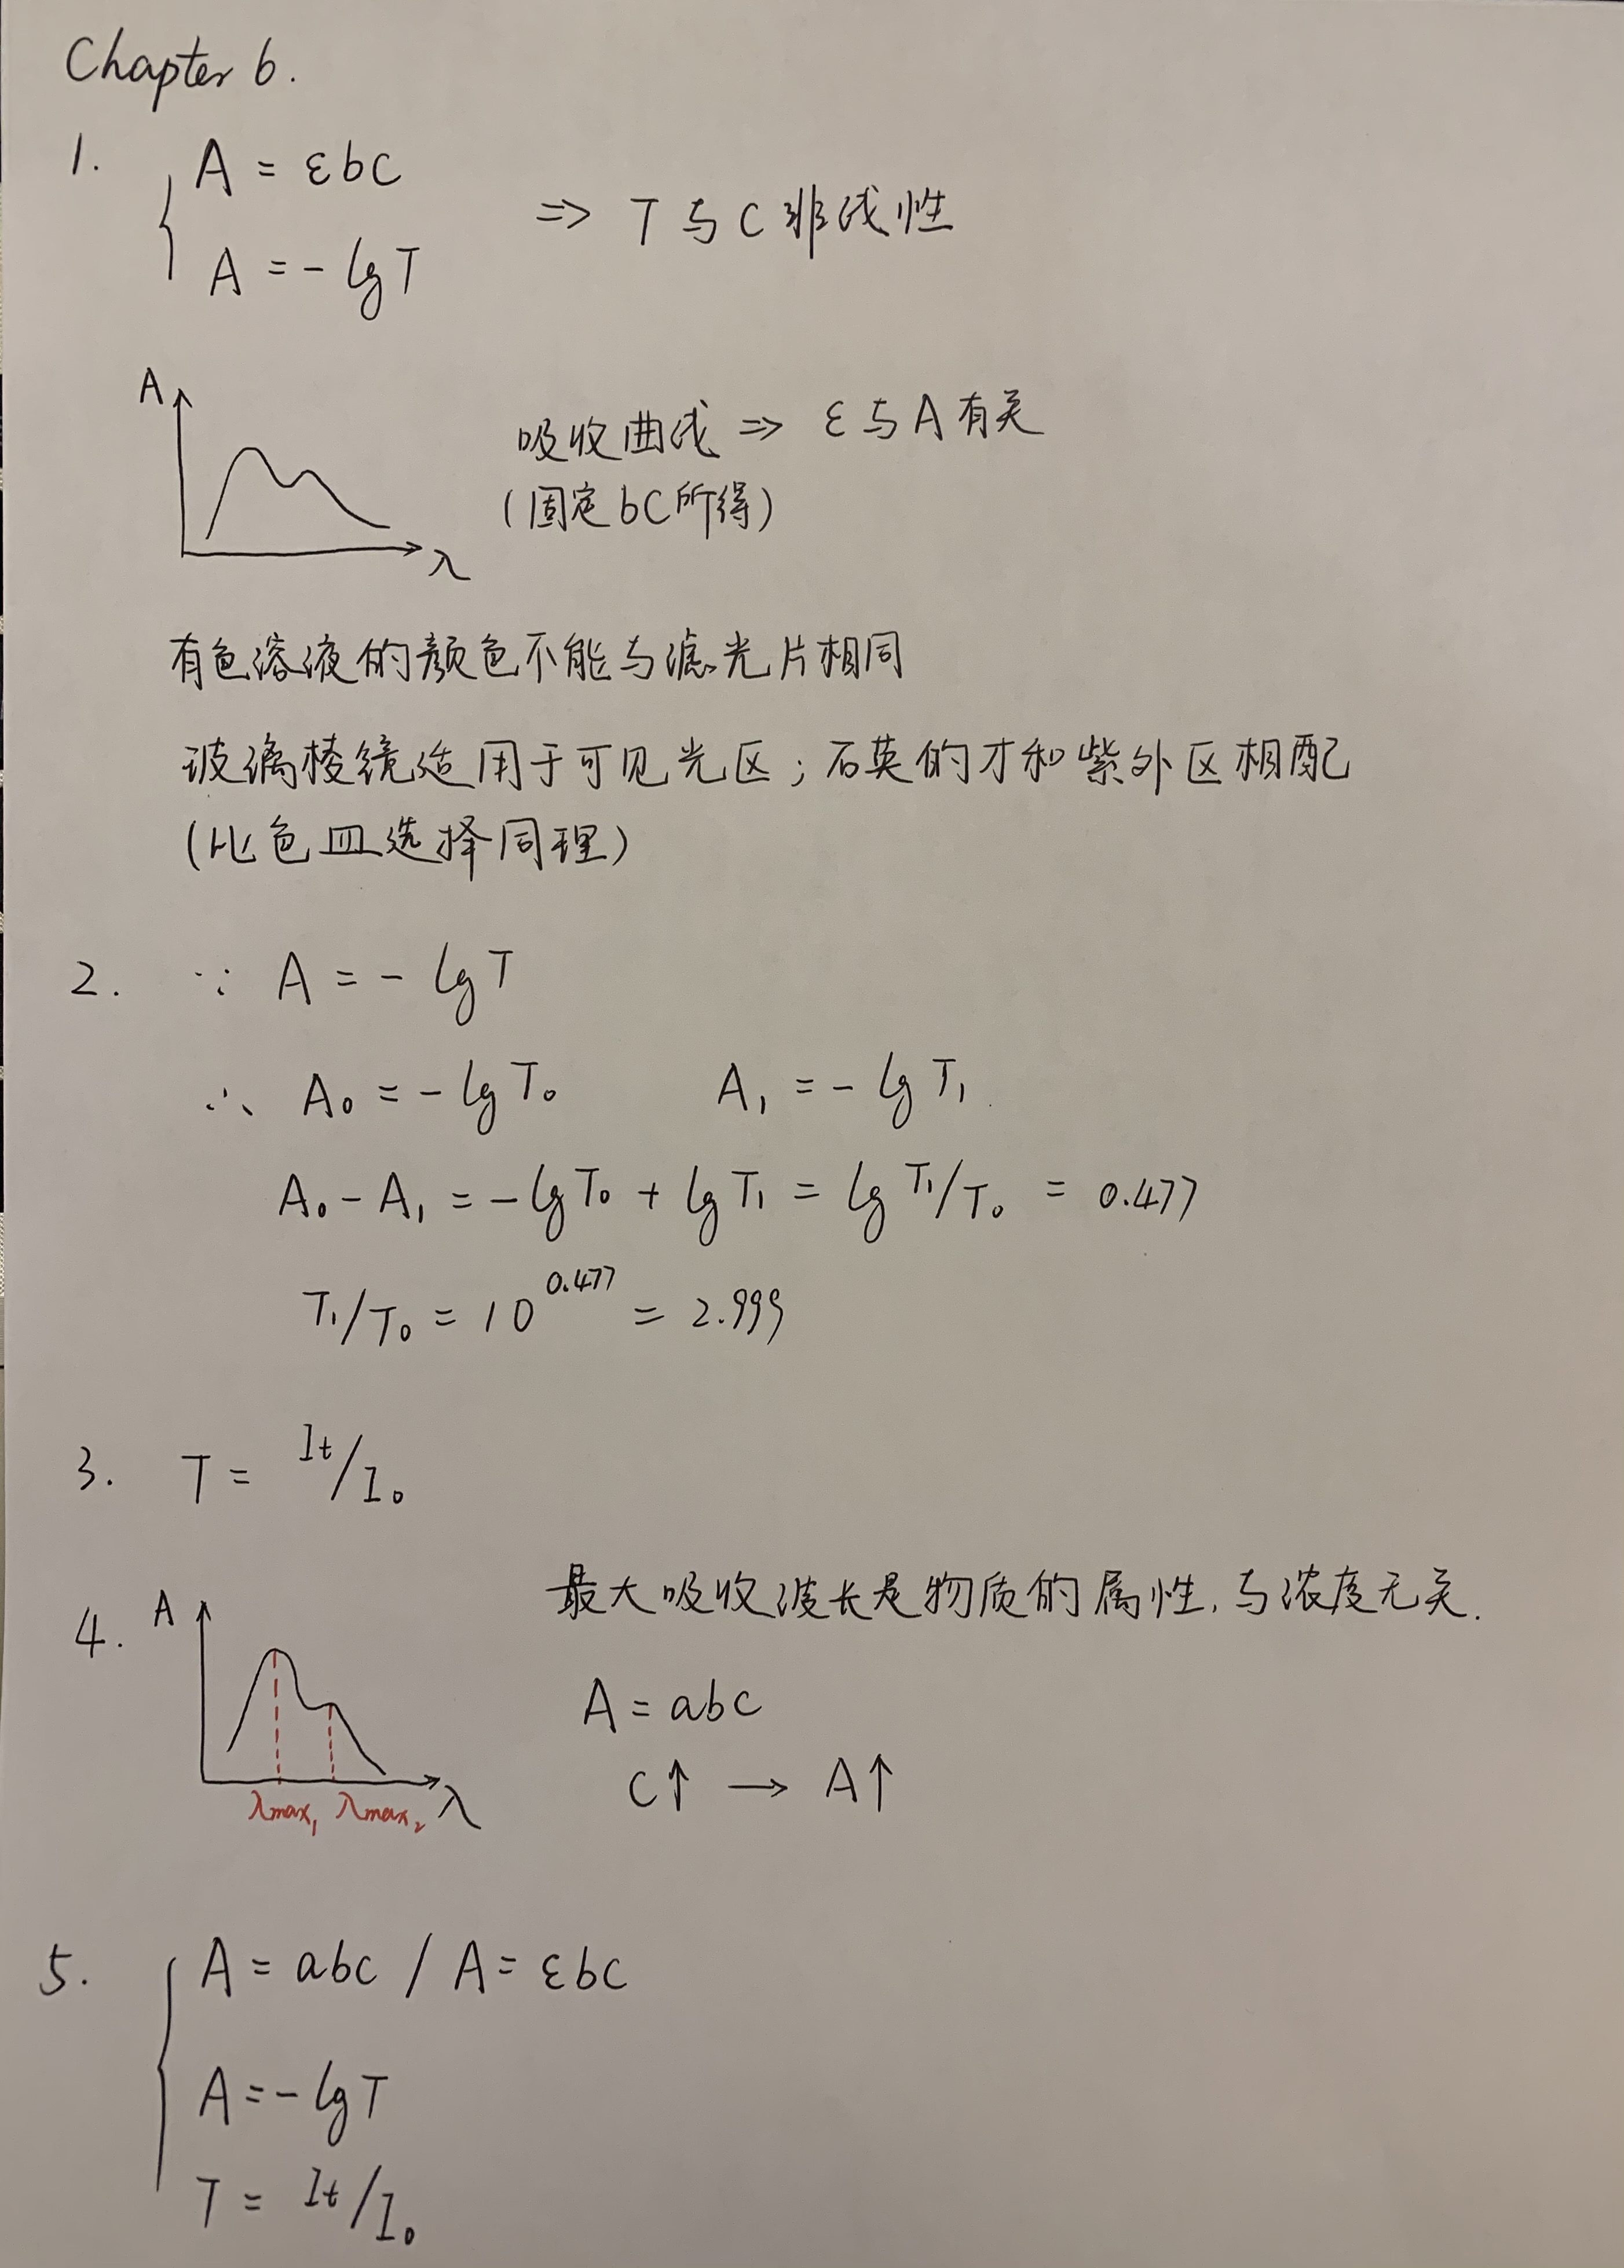 Chapter 6.
1. A = εbC
A = - lgT
⇒ T与C非线性
A
λ
吸收曲线 ⇒ ε与A有关
(固定bC所得)
有色溶液的颜色不能与滤光片相同
玻璃棱镜适用于可见光区；石英的才和紫外区相配
(比色皿选择同理)
2. ∵ A = - lgT
∴ A₀ = - lgT₀ A₁ = - lgT₁
A₀ - A₁ = - lgT₀ + lgT₁ = lg T₁/T₀ = 0.477
T₁/T₀ = 10^0.477 = 2.999
3. T = It/I₀
4. A
λmax₁ λmax₂ λ
最大吸收波长是物质的属性,与浓度无关.
A = abc
C↑ → A↑
5. A = abc / A = εbC
A = - lgT
T = It/I₀